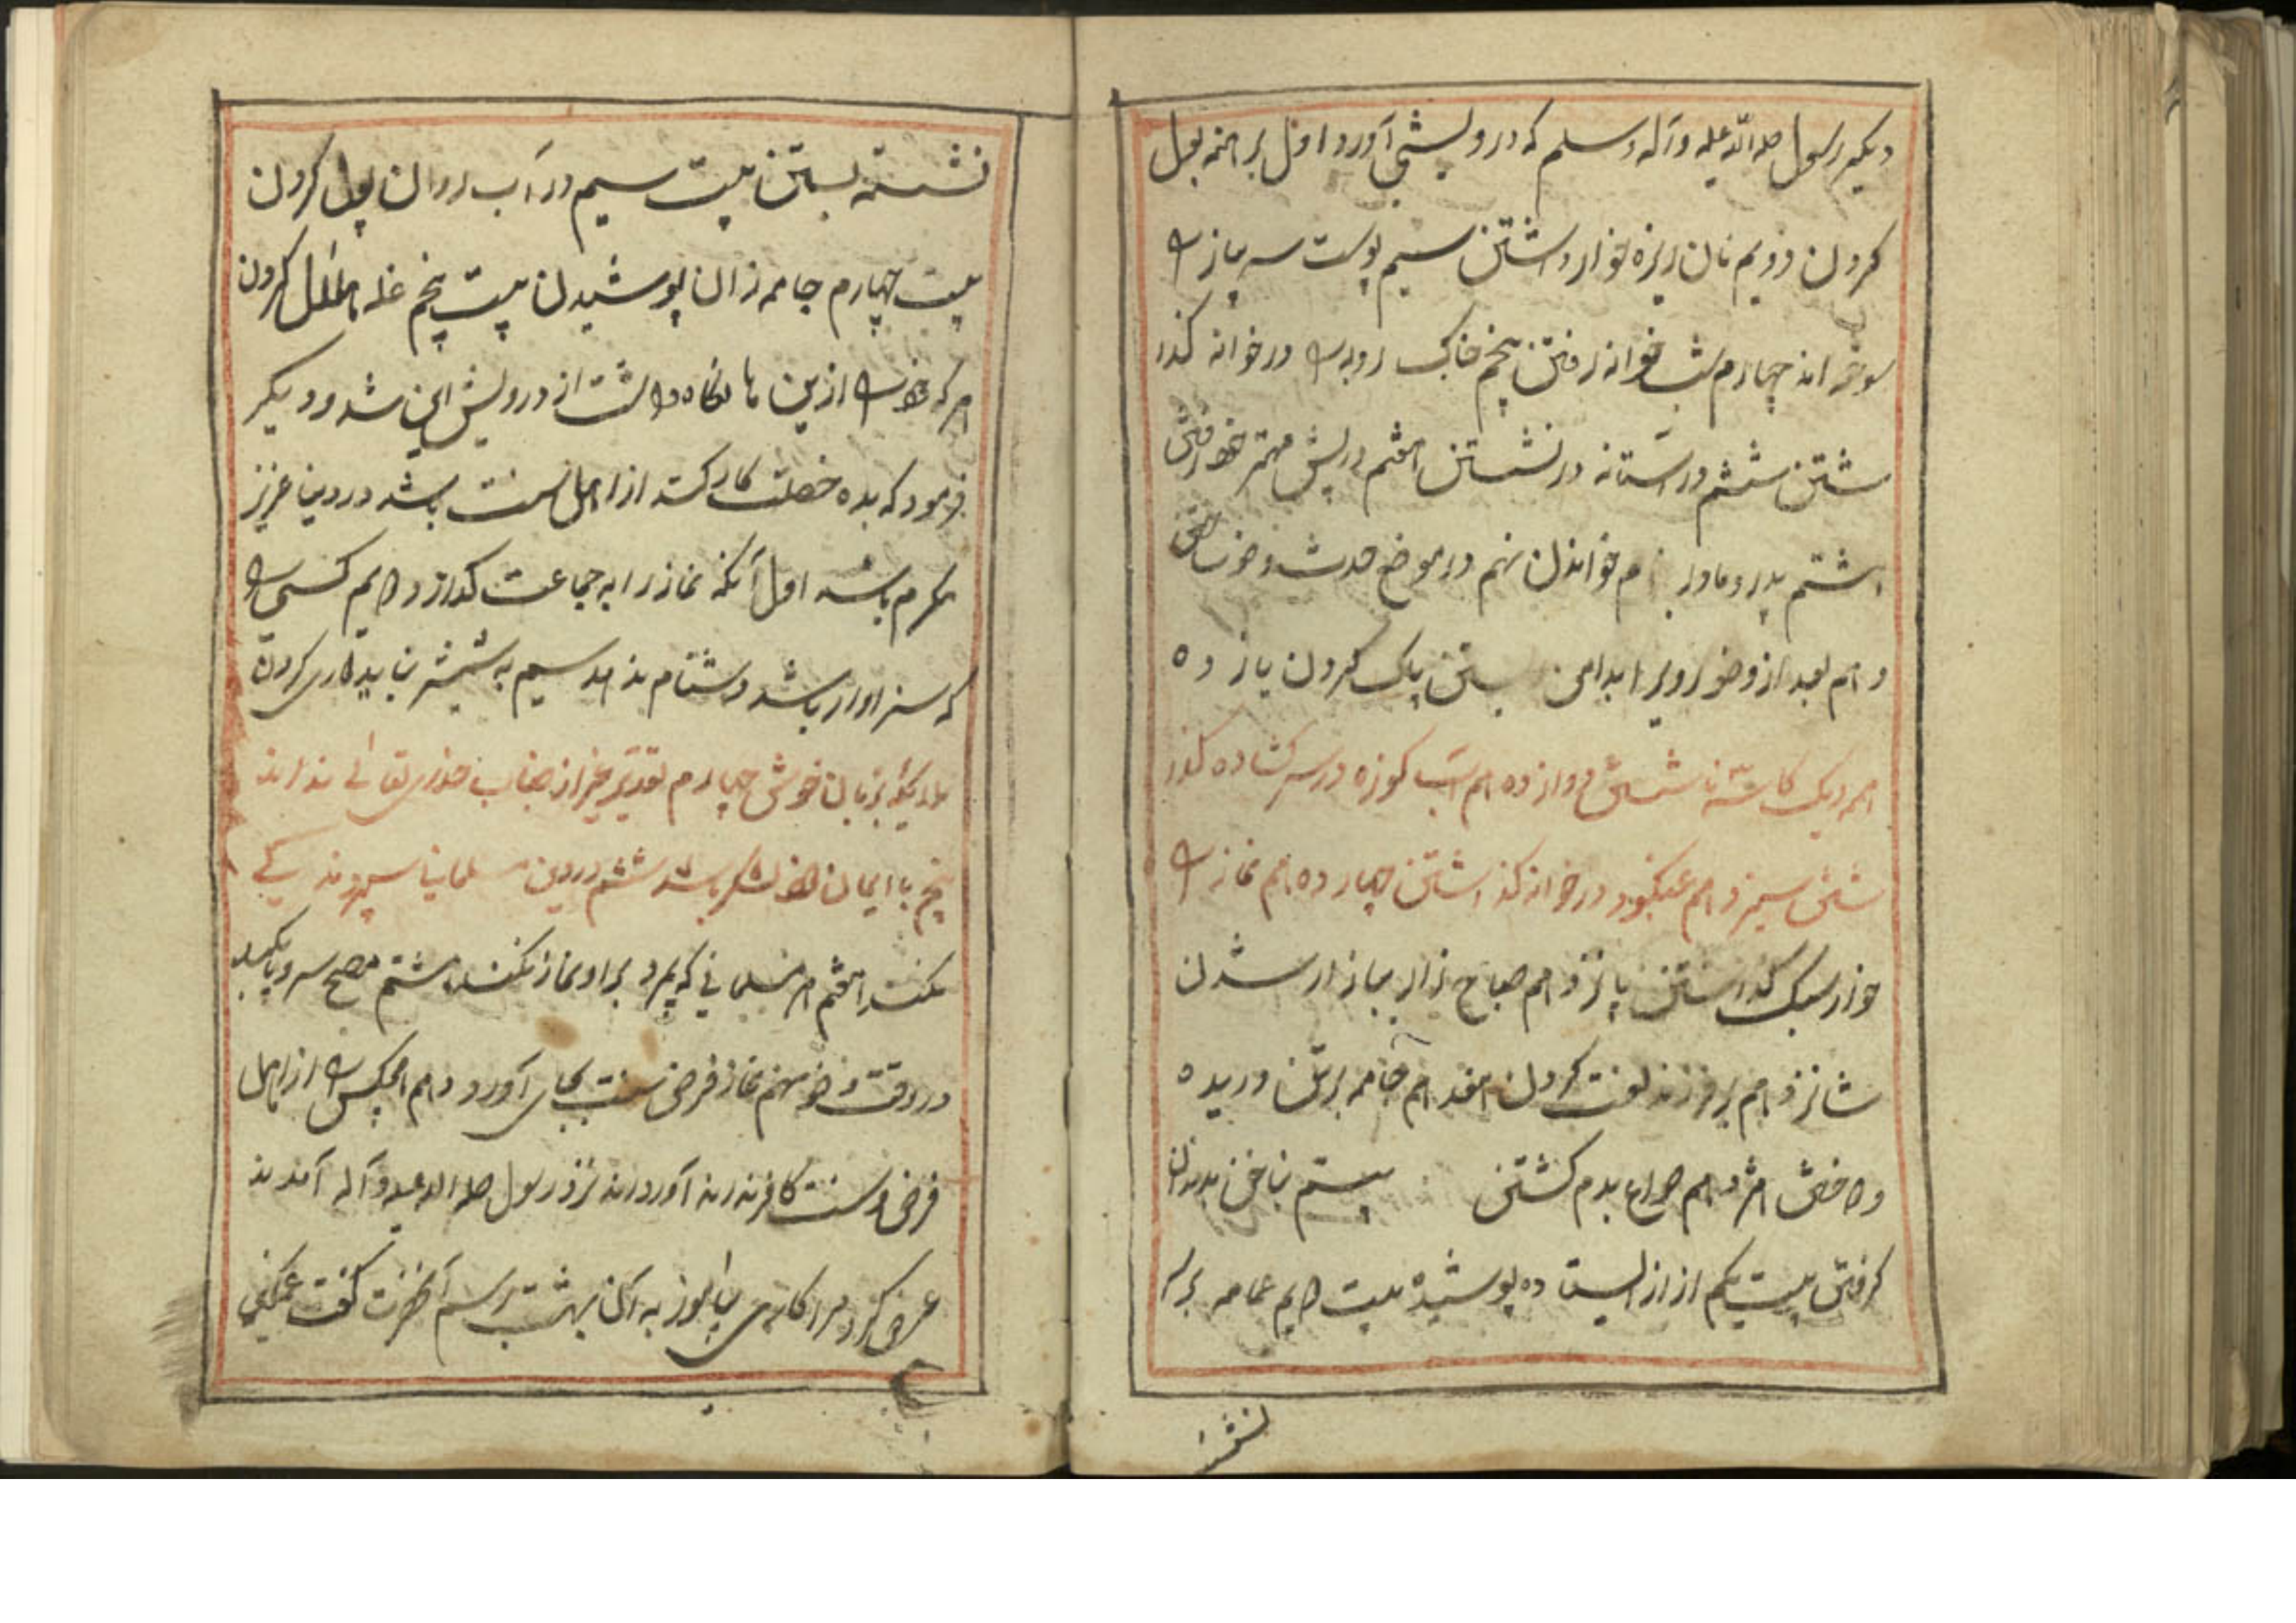 دیکیر رسول صلی الله علیه وآله وسلم که درویشی آورد اول برهنه بول
کردن دویم نان ریزه خوار داشتن سیم پوست سیر پیاز را
سوختن چهارم شب خوانه رفتن پنجم خاک روبه را در خوانه کذا
شتن ششم در آستانه در نشستن هفتم در پیش مهتر خود رفتن
هشتم پدر و مادر نام خواندن نهم در موضع حدث وضو ساختن
دهم بعد از وضو روی را بدامن پاک کردن یازده
هم دیک کاسه ناشستن دوازدهم آب کوزه در سر کشاده کذا
شتن سیزدهم عنکبوت در خوانه کذاشتن چهاردهم نماز را
خوار سبک کذاشتن پانزدهم صباح زار ببازار شدن
شانزدهم بر فرزند لعنت کردن هفدهم جامه بر تن دریده
دوختن هژدهم چراغ بدم کشتن بیستم ناخن بدندان
کرفتن بیست یکم ازار ایستاده پوشیده بیست دویم عمامه بر سر
نشسته
نشسته بستن بیست سیم در آب روان بول کردن
بیست چهارم جامه زنان پوشیدن بیست پنجم غله کردن
هر که خود را ازین ها نکاه داشت از درویش ایمن شد و دیکر
فرمود که بده خصلت کار کسته از اهل سنت باشد در دنیا عزیز
مکرم باشد اول آنکه نماز را به جماعت کذارد دویم کسی را
که سزاوار باشد دشنام ندهد سیم به شمشیر نباید کاری کردن
بلکه بزبان خوش چهارم تقدیر خیر از جناب خدای تعالی نداند
پنجم با ایمان خود شاکر باشد ششم در دین مسلمانی
نکند هفتم هر مسلمانی که بمیرد بر او نماز نکند هشتم مسح سر و پا نکند
در وقت وضو نهم نماز فرض سنت بجای آورد دهم هیچکس را از اهل
فرض و سنت کافر نزد رسول صلی الله علیه وآله آمدند
عرض کرد مرا کاری بیاموز به آن بهشت رسم آنحضرت کفت غمکین